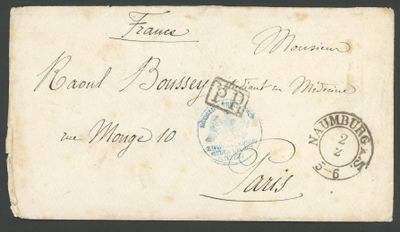 France
Monsieur
Raoul Boussey étudiant en Médecine
P.P.
rue Monge 10
Paris
NAUMBURG A/S.
2
2
5-6